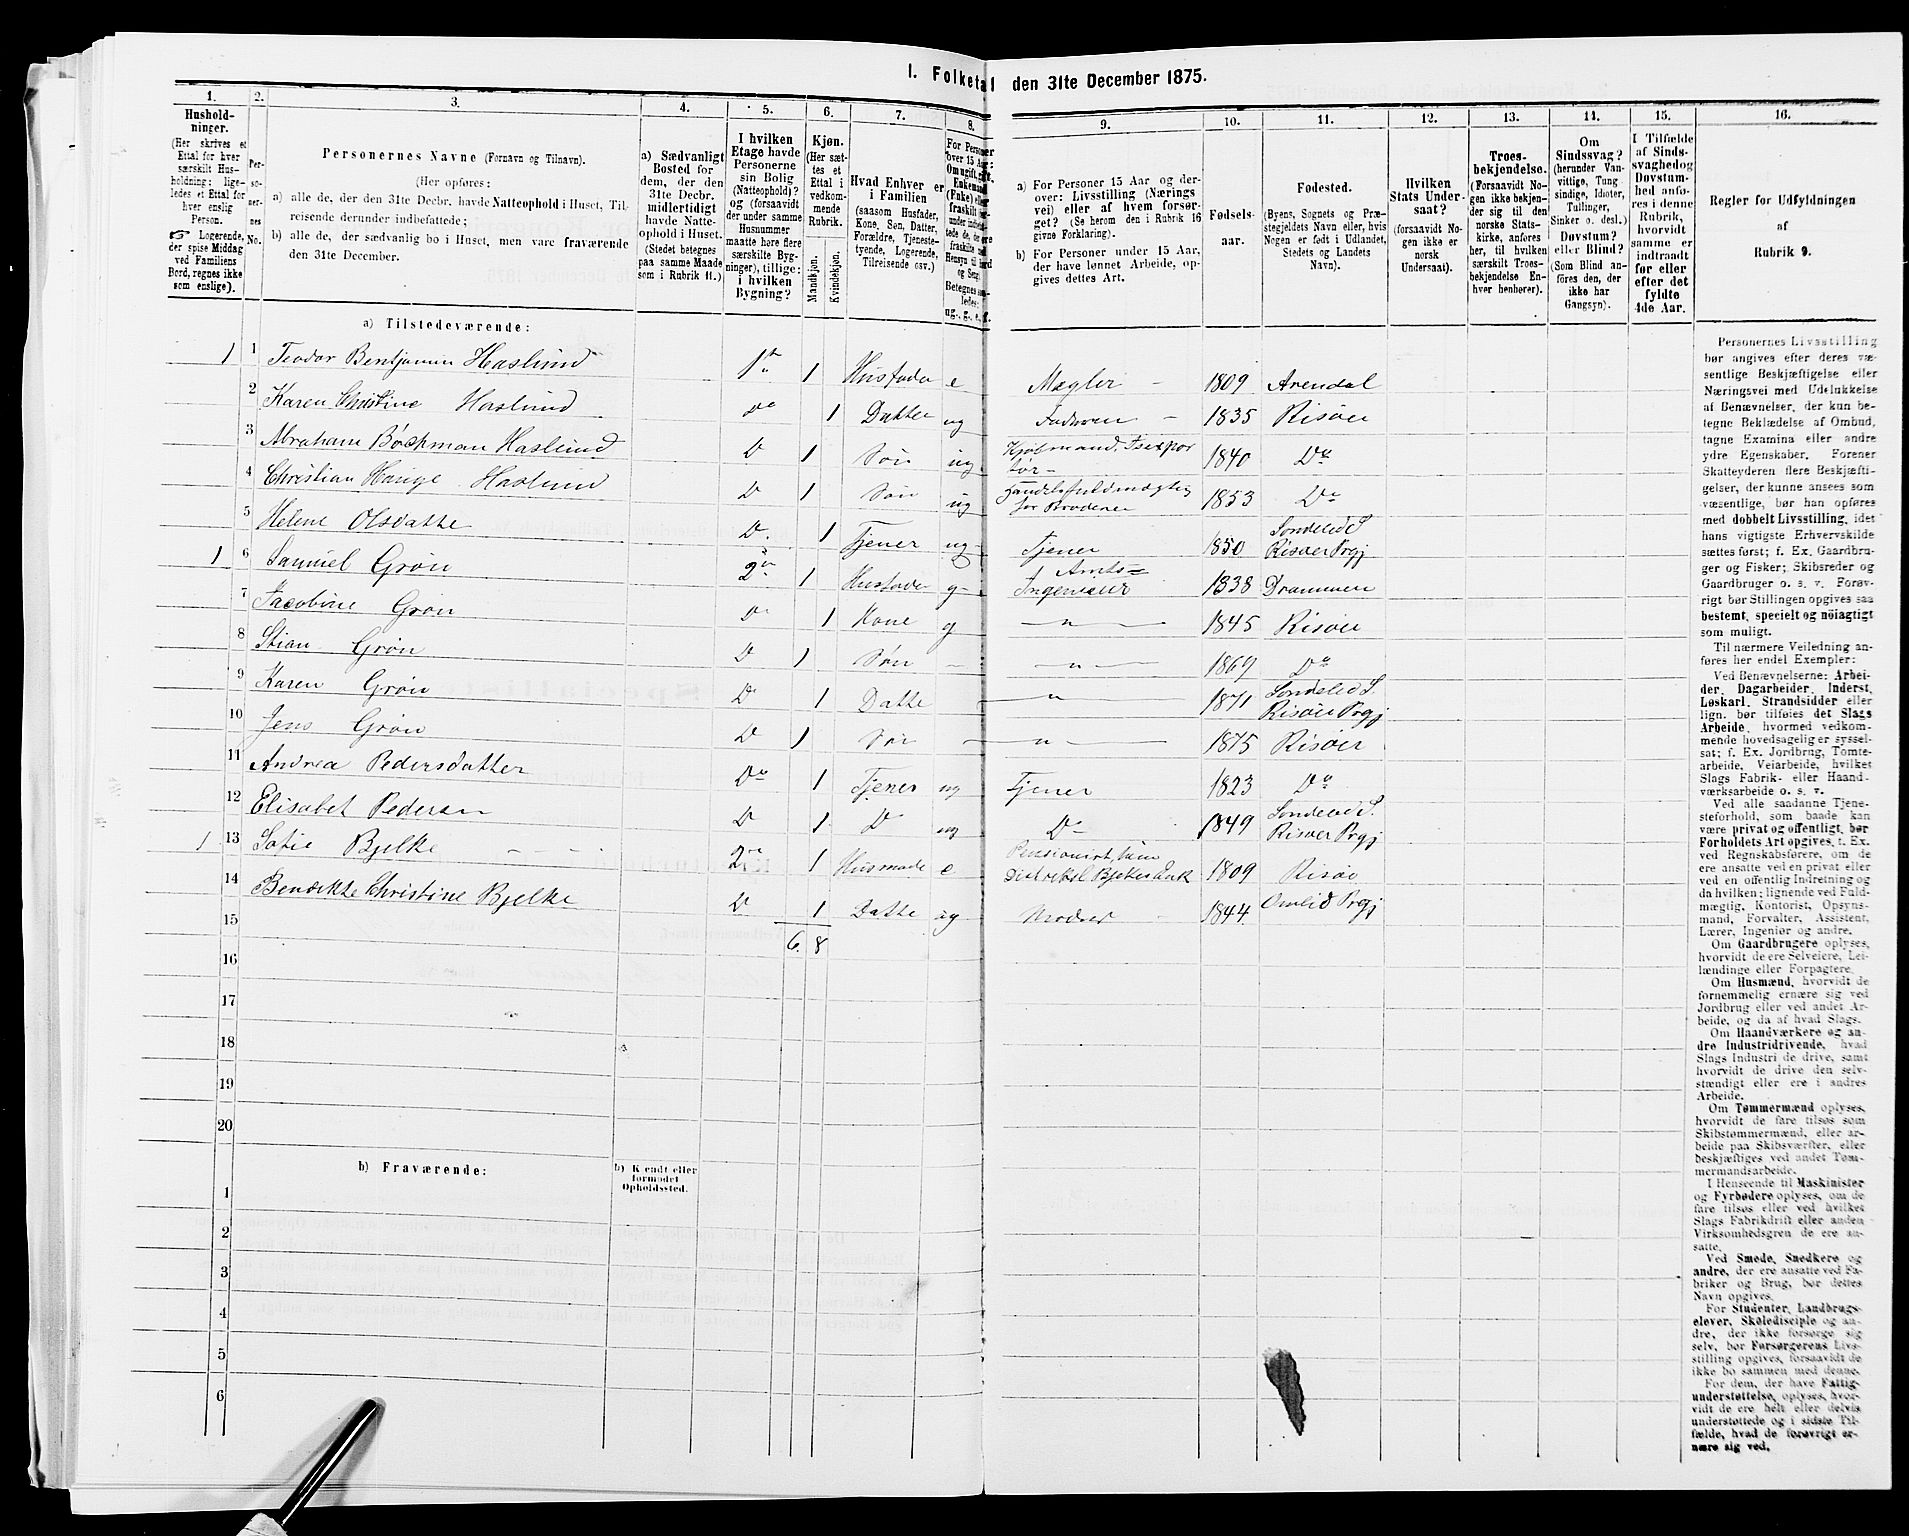 I. Folketal den 31te December 1875.
1. 2. 3. 4. 5. 6. 7. 8. 9. 10. 11. 12. 13. 14. 15. 16.
Hushold-
ninger.
(Her skrives et
Ettal for hver
særskilt Hus-
holdning; lige-
ledes et Ettal for
hver enslig
Person.
☞ Logerende,
der spise Middag
ved Familiens
Bord, regnes ikke
som enslige).
Per-
so-
ner-
nes
No.
Personernes Navne (Fornavn og Tilnavn).
(Her opføres:
a) alle de, der den 31te Decbr. havde Natteophold i Huset, Til-
reisende derunder indbefattede;
b) alle de, der sædvanlig bo i Huset, men vare fraværende
den 31te December.
a) Sædvanligt
Bosted for
dem, der den
31te Decbr.
midlertidigt
havde Natte-
ophold i Huset.
(Stedet betegnes
paa samme Maade
som i Rubrik 11.)
I hvilken
Etage havde
Personerne
sin Bolig
(Natteophold)?
og (forsaavidt
der under samme
Husnummer
maatte høre flere
særskilte Byg-
ninger), tillige:
i hvilken
Bygning?
Kjøn.
(Her sæt-
tes et
Ettal i
vedkom-
mende
Rubrik.
Mandkjøn.
Kvindekjøn.
Hvad Enhver er
i Familien
(saasom Husfader,
Kone, Søn, Datter,
Forældre, Tjeneste-
tyende, Logerende,
Tilreisende osv.)
For Personer
over 15 Aar:
Om ugift, gift,
Enkemand
(Enke) eller
fraskilt
a) For Personer 15 Aar og der-
over: Livsstilling (Nærings-
vei) eller af hvem forsør-
get? (Se herom den i Rubrik 16
givne Forklaring).
b) For Personer under 15 Aar,
der have lønnet Arbeide, op-
gives dettes Art.
Fødsels-
aar.
Fødested.
(Byens, Sognets og Præ-
stegjeldets Navn eller, hvis
Nogen er født i Udlandet,
Stedets og Landets
Navn).
Hvilken
Stats Under-
saat?
(forsaavidt No-
gen ikke er
norsk
Undersaat).
Troes-
bekjendelse.
(Forsaavidt No-
gen ikke bekjen-
der sig til den
norske Stats-
kirke, anføres
her, til hvilken
særskilt Troes-
bekjendelse En-
hver henhører).
Om
Sindssvag?
(herunder Van-
vittige, Tung-
sindige, Idioter,
Tullinger,
Sinker o. desl.)
Døvstum?
eller Blind?
(Som Blind an-
føres den, der
ikke har
Gangsyn).
I Tilfælde
af Sinds-
svaghed og
Døvstum-
hed anfø-
res i denne
Rubrik,
hvorvidt
samme er
indtraadt
før eller
efter det
fyldte
4de Aar.
Regler for Udfyldningen
af
Rubrik 9.
a) Tilstedeværende:
1 1 Teodor Bentjamin Haslund 1st 1 Husfader e Mægler – 1809 Arendal
2 Karen Christine Haslund Do 1 Datter ug Faderen – 1835 Risøer
3 Abraham Bøckman Haslund D 1 Søn ug 1840 Do
4 Christian Hauge Haslund D 1 Søn ug Handelsfuldmægtig
for Broderen 1853 Do
5 Helene Olsdatte D. 1 Tjener ug Tjener 1850 Søndeled S.
Risøer Prgj
1 6 Samuel Grøn 2den 1 Husfader g Amts=
Ingenieur 1838 Drammen
7 Jacobine Grøn Do 1 Kone g – " – 1845 Risøer
8 Stian Grøn D 1 Søn – – " – 1869 Do
9 Karen Grøn D 1 Datte – " – 1871 Søndeled S.
Risøer Prgj
10 Jens Grøn D 1 Søn – – " – 1875 Risøer
11 Andrea Pedersdatter Do 1 Tjener ug Tjener 1823 Do
12 Elisabet Pedersen D 1 D ug Do 1849 Søndeled S.
Risøer Prgj
1 13 Sofie Bjelke 2den 1 Husmode e Pensionist, 1809 Risøe
14 Bendikte Christine Bjelke D 1 Datte ug Moder 1844 Omlid Prgj
15 6. 8
16
17
18
19
20
b) Fraværende:
b) Kjendt eller
formodet
Opholdssted.
1
2
3
4
5
6
Personernes Livsstilling
bør angives efter deres væ-
sentlige Beskjæftigelse eller
Næringsvei med Udelukkelse
af Benævnelser, der kun be-
tegne Beklædelse af Ombud,
tagne Examina eller andre
ydre Egenskaber. Forener
Skatteyderen flere Beskjæfti-
gelser, der kunne ansees som
væsentlige, bør han opføres
med dobbelt Livsstilling, idet
hans vigtigste Erhvervskilde
sættes først; f. Ex. Gaardbru-
ger og Fisker; Skibsreder og
Gaardbruger o. s. v. Forøv-
rigt bør Stillingen opgives saa
bestemt, specielt og nøiagtigt
som muligt.
Til nærmere Veiledning an-
føres her endel Exempler:
Ved Benævnelserne: Arbei-
der, Dagarbeider, Inderst,
Løskarl, Strandsidder eller
lign. bør tilføies det Slags
Arbeide, hvormed vedkom-
mende hovedsagelig er syssel-
sat; f. Ex. Jordbrug, Tomte-
arbeide, Veiarbeide, hvilket
Slags Fabrik- eller Haand-
værksarbeide o. s. v.
Ved alle saadanne Tjene-
steforhold, som baade kan
være privat og offentligt, bør
Forholdets Art opgives, f. Ex.
ved Regnskabsførere, om de
ere ansatte ved en privat eller
ved en offentlig Indretning og
da hvilken; lignende ved Fuld-
mægtig, Kontorist, Opsyns-
mand, Forvalter, Assistent,
Lærer, Ingeniør og andre.
Om Gaardbrugere oplyses,
hvorvidt de ere Selveiere, Lei-
lændinge eller Forpagtere.
Om Husmænd, hvorvidt de
fornemmelig ernære sig ved
Jordbrug eller ved andet Ar-
beide, og da af hvad Slags.
Om Haandværkere og an-
dre Industridrivende, hvad
Slags Industri de drive, samt
hvorvidt de drive den selv-
stændigt eller ere i andres
Arbeide.
Om Tømmermænd oplyses,
hvorvidt de fare tilsøs som
Skibstømmermænd, eller ar-
beide paa Skibsværfter, eller
beskjæftiges ved andet Tøm-
mermandsarbeide.
I Henseende til Maskinister
og Fyrbødere oplyses, om de
fare tilsøs eller ved hvilket
Slags Fabrikdrift eller anden
Virksomhedsgren de ere an-
satte.
Ved Smede, Snedkere og
andre, der ere ansatte ved Fa-
briker og Brug, bør dettes
Navn opgives.
For Studenter, Landbrugs-
elever, Skoledisciple og an-
dre, der ikke forsørge sig
selv, bør Forsørgerens Livs-
stilling opgives, forsaavidt de
ikke bo sammen med denne.
For dem, der have Fattig-
understøttelse, oplyses, hvor-
vidt de ere helt eller delvis
understøttede og i sidste Til-
fælde, hvad de forøvrigt er-
nære sig ved.